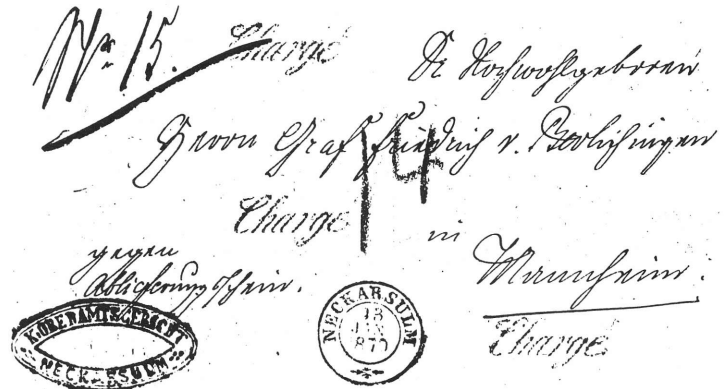 Nr. 15. Chargé
Sr Hochwohlgeboren
Herrn Graf Friedrich v. Berlichingen
14
Chargé
in
gegen
Ablieferungsschein.
Mannheim.
K. OBERAMTSGERICHT
NECKARSULM
NECKARSULM
18
JUN
870
Chargé